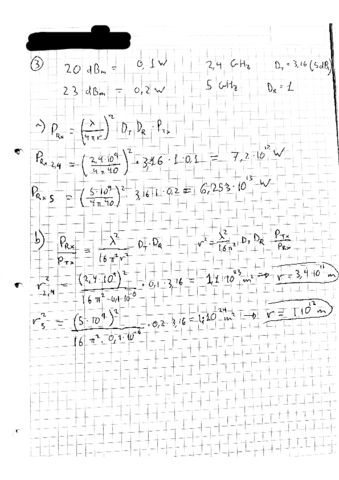 ③ 20 dBm = 0,1 W 2,4 GHz D_T = 3,16 (5dB)
23 dBm = 0,2 W 5 GHz D_R = 1
a) P_Rx = (λ/4πr)² D_T D_R · P_Tx
P_Rx2,4 = (2,4·10⁹/4π40)² · 3,16 · 1 · 0,1 = W
P_Rx5 = (5·10⁹/4π40)² 3,16·1·0.2 = W
b) P_Rx/P_Tx = λ²/16π²r² D_T·D_R r² = λ²/16π² D_T D_R P_Tx/P_Rx
r²_2,4 = (2,4·10⁹)²/16π²·0,1·10⁻⁶ · 0,1 · 3,16 = m² → r = 3,4·10 m
r²_5 = (5·10⁹)²/16π²·0,1·10⁻⁶ · 0,2·3,16 = m² → r = 1·10¹² m